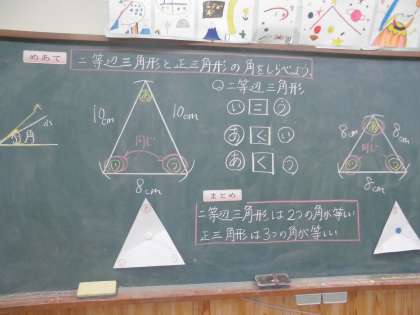 めあて
二等辺三角形と正三角形の角をしらべよう。
②二等辺三角形
い = う
あ < い
あ < う
角
あ
10cm
10cm
同じ
い
う
8cm
8cm
8cm
同じ
8cm
まとめ
二等辺三角形は2つの角が等しい
正三角形は3つの角が等しい